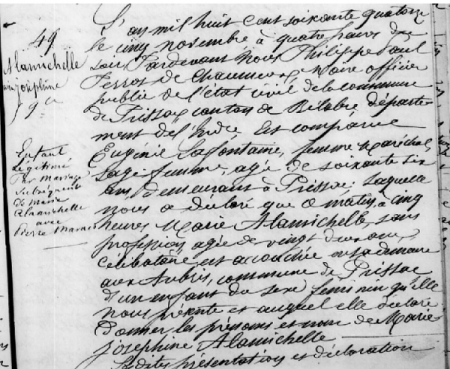 49
Alamichelle
Marie Joséphine
L'an mil huit cent soixante quatorze
le cinq novembre à quatre heures du
soir Pardevant Nous Philippe Paul
Terros de Chaumeron, Maire officier
public de l'état civil de la commune
de Prissac canton de Belabre départe
ment de l'Indre est comparue
Eugénie Lafontaine, femme Maréchal
sage femme, agée de soixante six
ans, demeurant à Prissac; laquelle
nous a déclaré que ce matin, à cinq
heures Marie Alamichelle, sans
profession, agée de vingt deux ans,
célibataire est accouchée en sa demeure
aux Aubris, commune de Prissac
d'un enfant du sexe féminin qu'elle
nous présente et auquel elle déclare
donner les prénoms et nom de Marie
Joséphine Alamichelle
Lesdites présentation et déclaration
Enfant
légitimé
Par Mariage
subséquent
de Marie
Alamichelle
Pierre